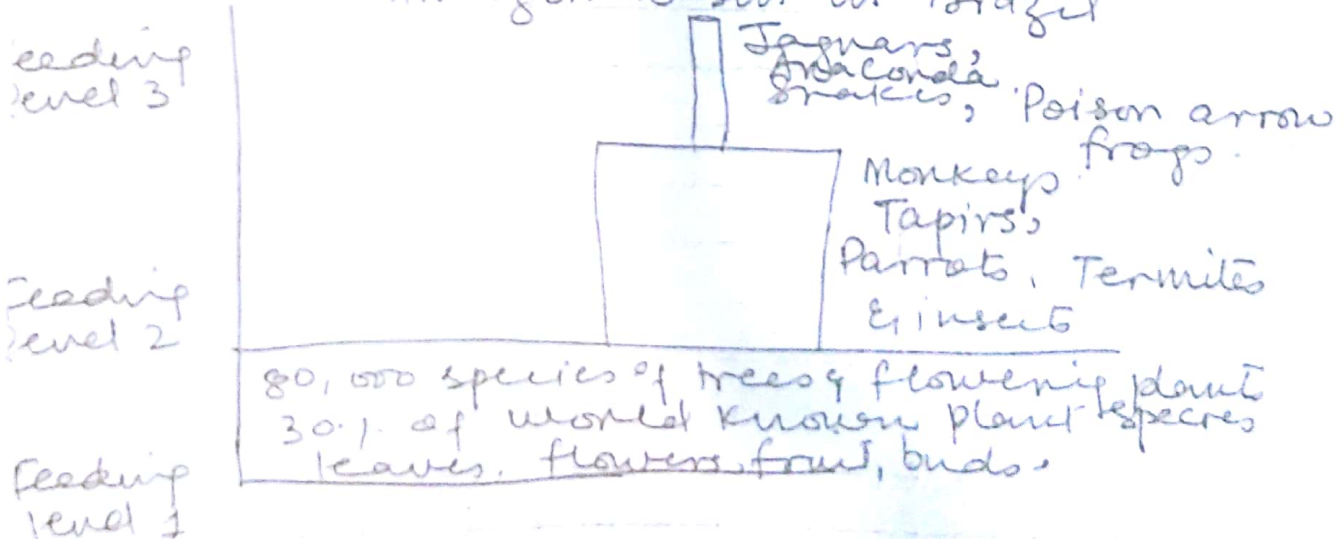 in Brazil
eeding
evel 3
Jaguars,
Anaconda
Snakes, Poison arrow
frogs.
Monkeys
Tapirs,
Parrots, Termites
& insects
eeding
evel 2
80,000 species of trees & flowering plant
30% of world known plant species
leaves, flowers, fruit, buds.
Feeding
level 1